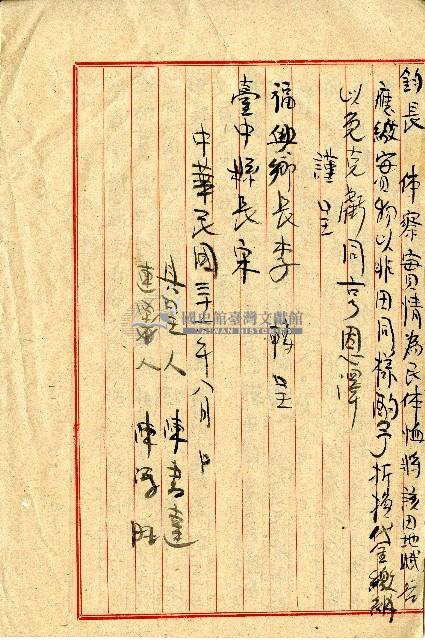 鈞長　体察實情為民体恤將該田地賦谷
應繳實物以非田同樣酌予折換代金繳納
以免克虧同享恩澤
謹呈
福興鄉長李　轉呈
臺中縣長宋
中華民國三十　年八月　日
具呈人　陳書達
連署人　陳
國史館臺灣文獻館
TAIWAN HISTORICA